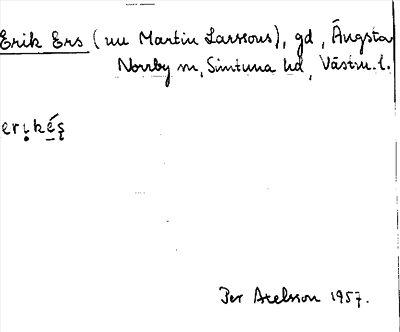 Erik Ers (nu Martin Larssons), gd, Ängsta
Norrby sn, Simtuna hd, Västm. l.
erı̣kę́ş
Per Axelsson 1957.